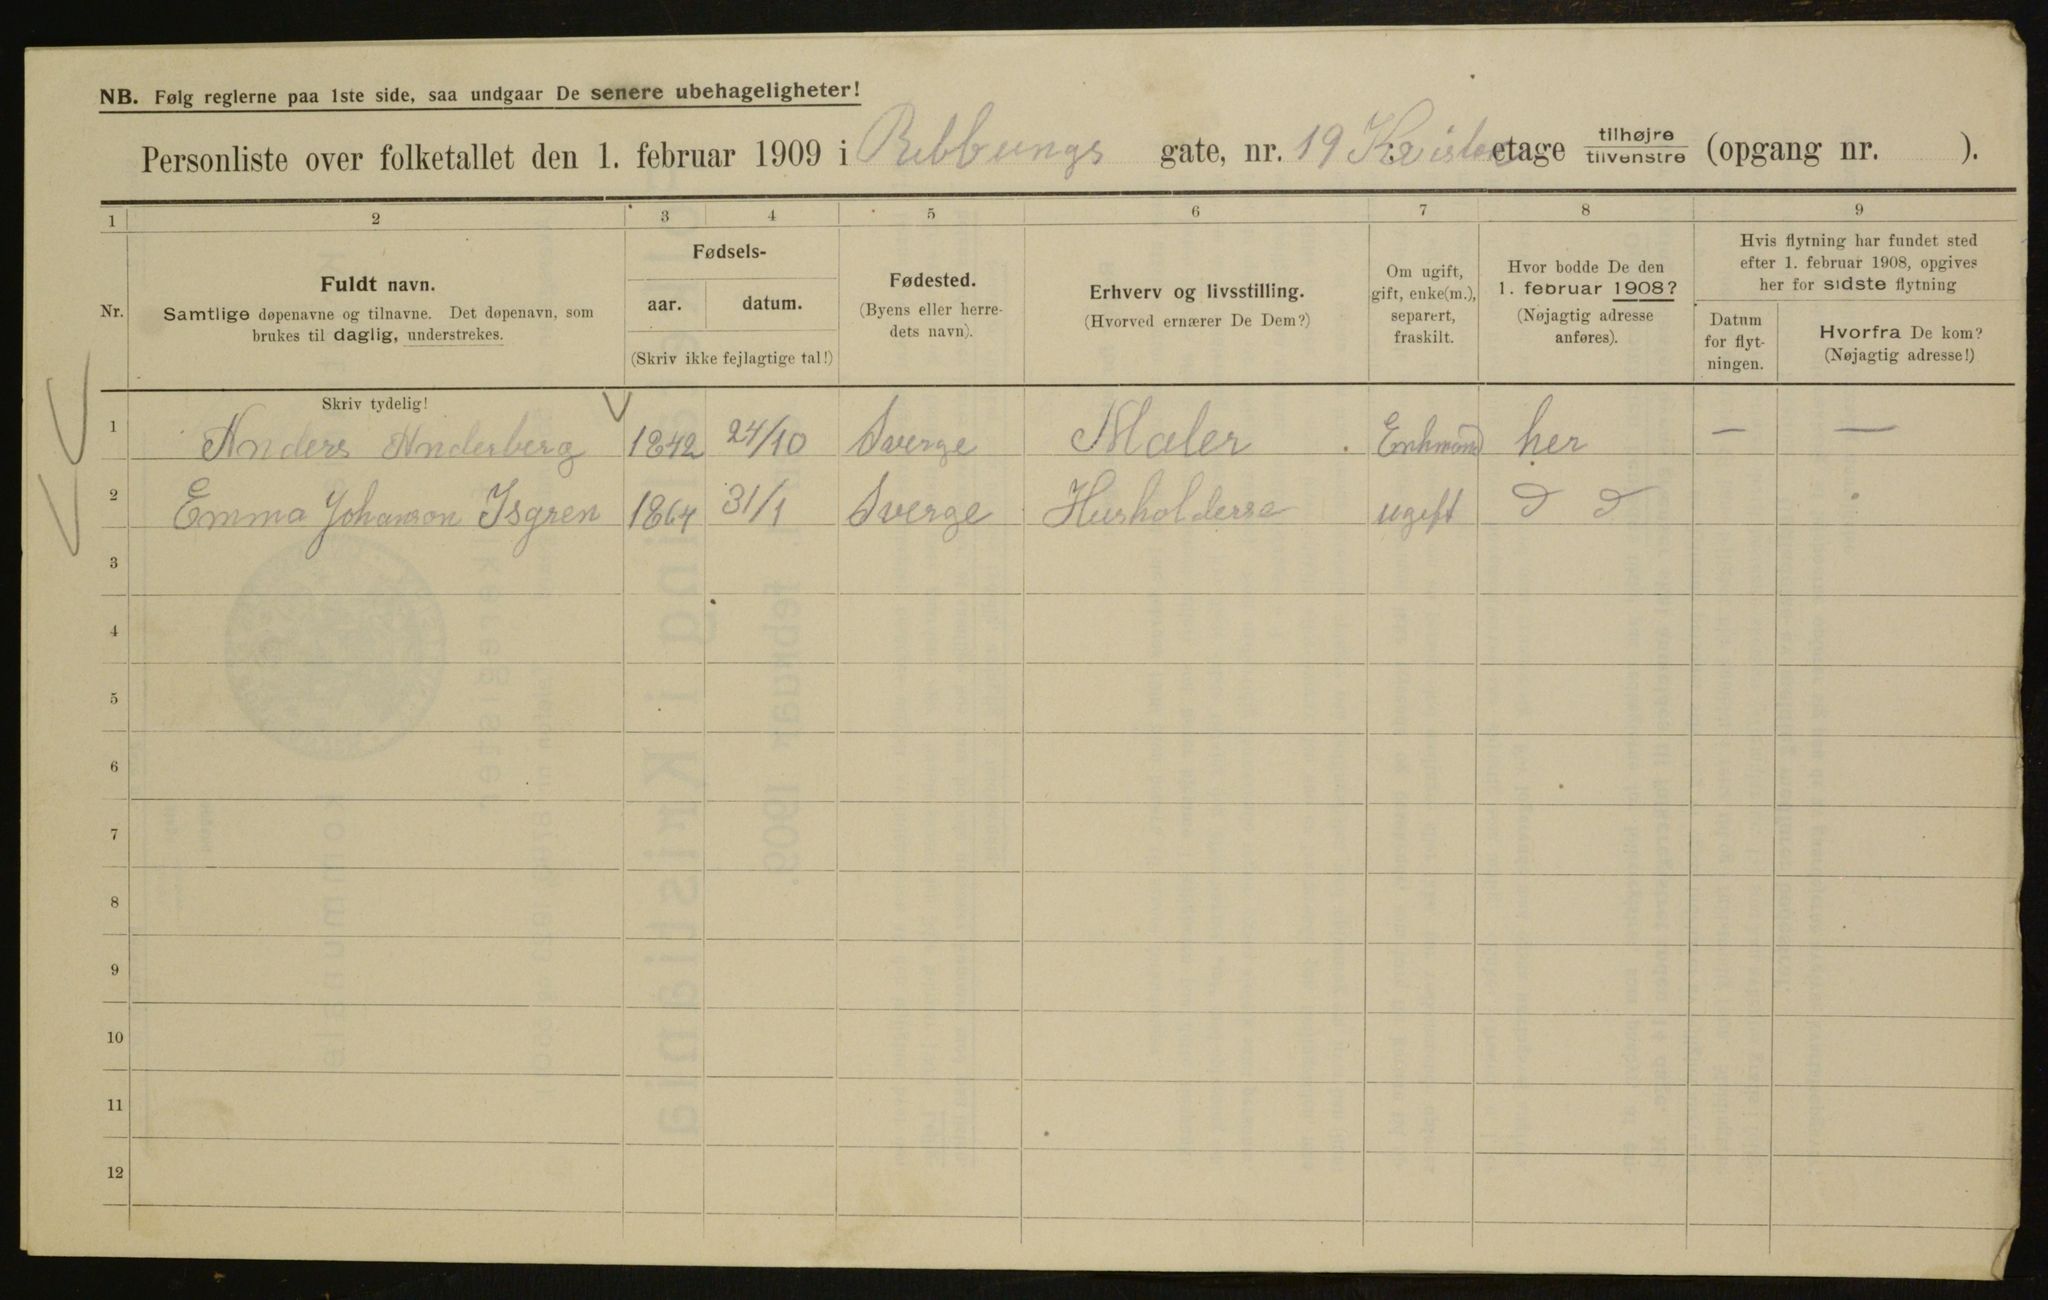 NB. Følg reglerne paa 1ste side, saa undgaar De senere ubehageligheter!
Personliste over folketallet den 1. februar 1909 i Ribbungs gate, nr. 19 etage tilhøjre/tilvenstre (opgang nr. ).
1 2 3 4 5 6 7 8 9
Nr.
Fuldt navn.
Samtlige døpenavne og tilnavne. Det døpenavn, som
brukes til daglig, understrekes.
Fødsels-
aar. datum.
(Skriv ikke fejlagtige tal!)
Fødested.
(Byens eller herre-
dets navn).
Erhverv og livsstilling.
(Hvorved ernærer De Dem?)
Om ugift,
gift, enke(m.),
separert,
fraskilt.
Hvor bodde De den
1. februar 1908?
(Nøjagtig adresse
anføres).
Hvis flytning har fundet sted
efter 1. februar 1908, opgives
her for sidste flytning
Datum
for flyt-
ningen.
Hvorfra De kom?
(Nøjagtig adresse!)
Skriv tydelig!
1 Anders Anderberg 1842 24/10 Sverge Maler Enkmand her — —
2 Emma Johanson Isgren 1864 31/1 Sverge Husholderse ugift D D
3
4
5
6
7
8
9
10
11
12